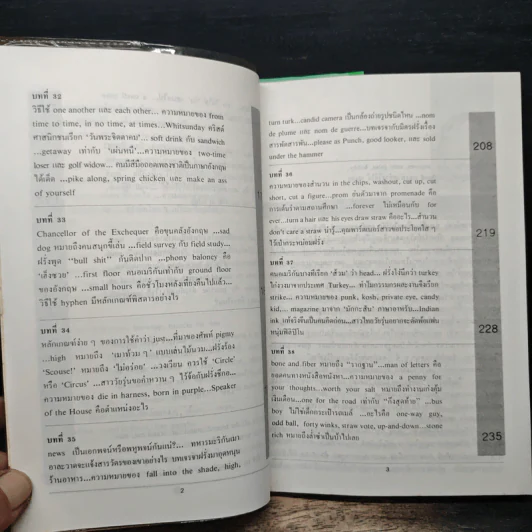 บทที่ 32
วิธีใช้ one another และ each other... ความหมายของ from
time to time, in no time, at times...Whitsunday คริสต์
ศาสนิกชนเรียก 'วันพระจิตตาคม' ...soft drink กับ sandwich
...getaway เท่ากับ 'เผ่นหนี' ...ความหมายของ two-time
loser และ golf widow... คนมีสีมีออดตองชาติเป็นภาษาอังกฤษ
...pike along, spring chicken และ make an ass
of yourself
บทที่ 33
Chancellor of the Exchequer คือขุนคลังอังกฤษ ...sad
dog หมายถึงคนสนุกขี้เล่น ...field survey กับ field study...
ฝรั่งพูด "bull shit" กันติดปาก ...phony baloney คือ
...first floor คนอเมริกันเท่ากับ ground floor
ของอังกฤษ ...small hours คือชั่วโมงหลังเที่ยงคืนไปแล้ว...
วิธีใช้ hyphen มีหลักเกณฑ์พิสดารอย่างไร
บทที่ 34
หลักเกณฑ์ง่าย ๆ ของการใช้คำว่า just...ที่มาของศัพท์ pigsny
...high หมายถึง 'เมาท้วม ๆ' แบบเสน่ไม้นวม...ฝรั่งร้อง
'Scouse!' หมายถึง 'ไม่อร่อย' ...วงเวียน ควรใช้ 'Circle'
หรือ 'Circus' ...สาววัยรุ่นขอคำหวาน ๆ ไว้จ้อกับฝรั่งซี้อก...
ความหมายของ die in harness, born in purple...Speaker
of the House คือตำแหน่งอะไร
บทที่ 35
news เป็นเอกพจน์หรือพหูพจน์กันแน่?... ทหารมะริกันเมา
อาละวาดจะแจ้งสารวัตรของเขาอย่างไร บทเจรจาฝรั่งมาอุดหนุน
ร้านอาหาร...ความหมายของ fall into the shade, high,
2
turn turk...candid camera เป็นกล้องถ่ายรูปชนิดไหน ...nom
de plume และ nom de guerre...บทเจรจากับมิตรฝรั่งเรื่อง
...please as Punch, good looker, และ sold
under the hammer
208
บทที่ 36
ความหมายของสำนวน in the chips, washout, cut up, cut
short, cut a figure...prom ย่นตัวมาจาก promenade คือ
การเต้นรำตามสถานศึกษา ...forever ไม่เหมือนกับ for
ever...turn a hair และ his eyes draw straw คืออะไร...สำนวน
don't care a straw
219
บทที่ 37
คนอเมริกันบางทีเรียก 'ส้วม' ว่า head... ฝรั่งไม่นึกว่า turkey
ไก่งวงมาจากประเทศ Turkey...
strike... ความหมายของ punk, kosh, private eye, candy
kid,... magazine มาจาก ...Indian
228
บทที่ 38
bone and fiber หมายถึง "รากฐาน"...man of letters คือ
ยอดคนทางหนังสือหนังหา...ความหมายของ a penny for
your thoughts...worth your salt หมายถึงทำงานเก่งคุ้ม
เงินเดือน...one for the road เท่ากับ "กึ๊งสุดท้าย" ...bus
boy ไม่ใช่เด็กกระเป๋ารถเมล์ ...อะไรคือ one-way guy,
odd ball, forty winks, straw vote, up-and-down...none
rich
235
3